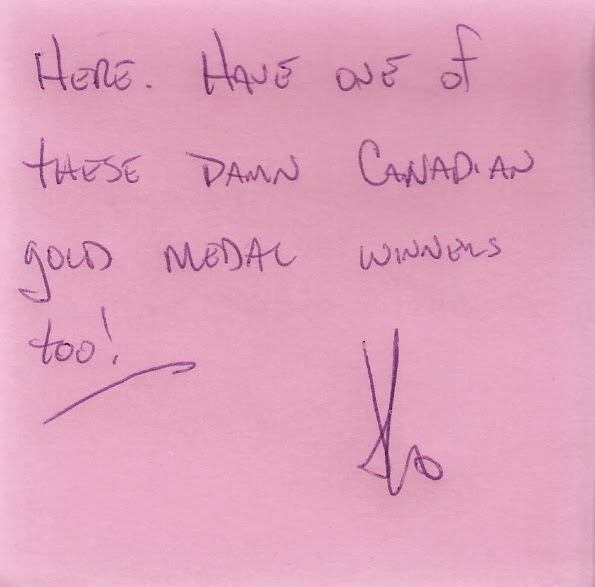 Here. Have one of
these damn Canadian
gold medal winners
too!